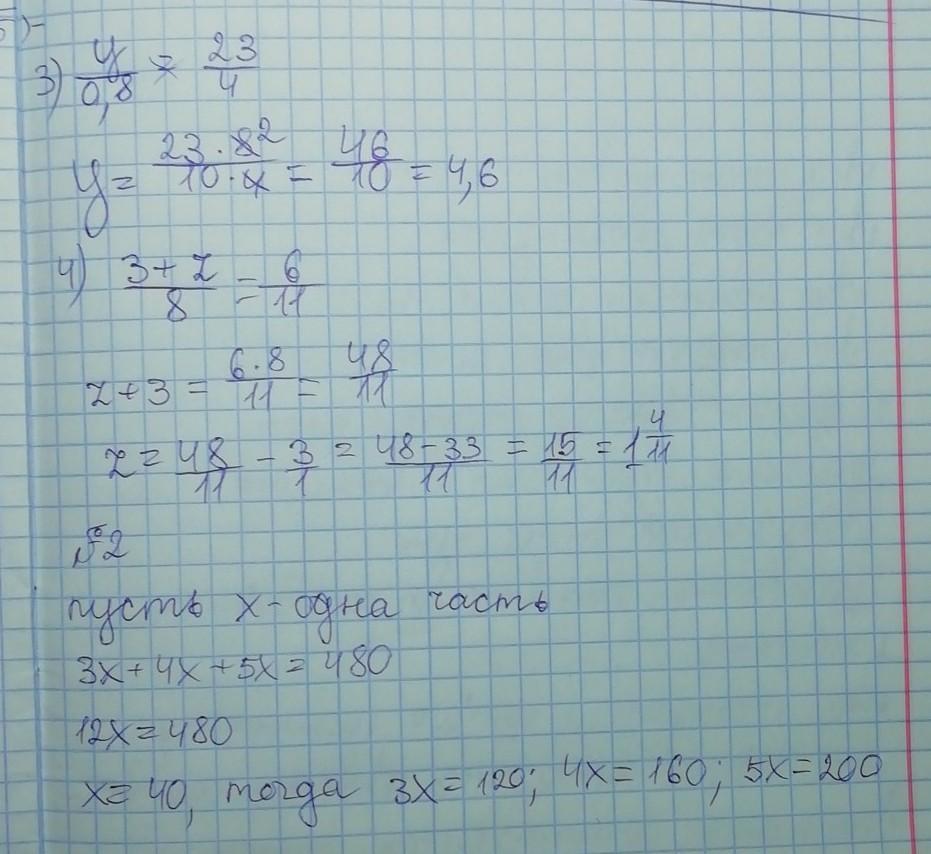 3) y/0,8 = 23/4
y = 23·8²/10·4 = 46/10 = 4,6
4) 3+z/8 = 6/11
z+3 = 6·8/11 = 48/11
z = 48/11 - 3/1 = 48-33/11 = 15/11 = 1 4/11
№2
пусть x - одна часть
3x+4x+5x=480
12x=480
x=40, тогда 3x=120; 4x=160; 5x=200